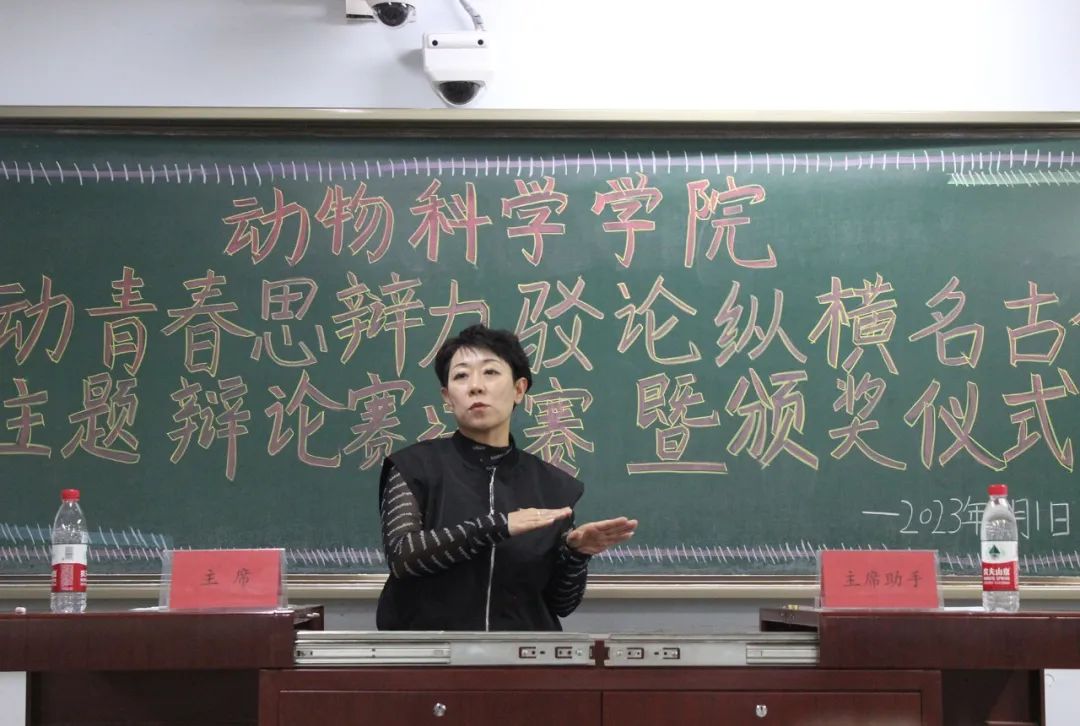 动物科学学院
动青春思辩力驳论纵横名古
主题辩论赛决赛暨颁奖仪式
—2023年 月1日
主席
主席助手
农夫山泉